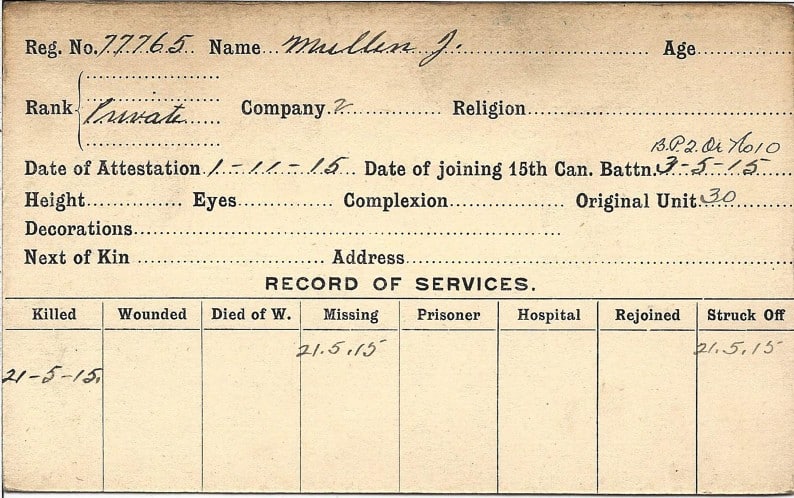 Reg. No. 77765 Name Mullen J. Age
Rank Private Company 2 Religion
B.P.2. Or No 10
Date of Attestation 1-11-15 Date of joining 15th Can. Battn. 3-5-15
Height Eyes Complexion Original Unit 30
Decorations
Next of Kin Address
RECORD OF SERVICES.
Killed Wounded Died of W. Missing Prisoner Hospital Rejoined Struck Off
21.5.15 21.5.15
21-5-15.